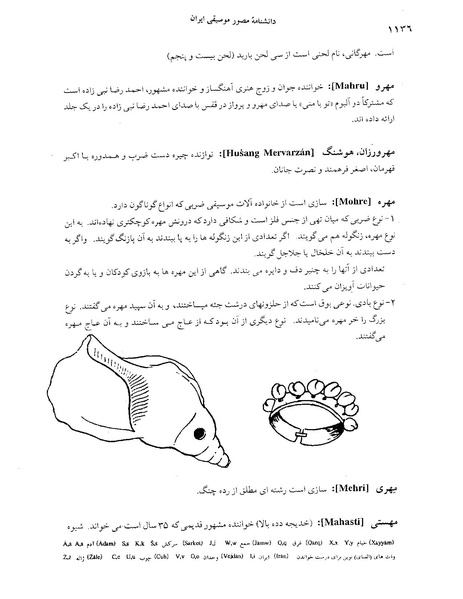 دانشنامهٔ مصور موسیقی ایران
۱۱۳۶
است. مهرگانی، نام لحنی است از سی لحن باربد (لحن بیست و پنجم)
مهرو [Mahru]: خواننده جوان و زوج هنری آهنگساز و خواننده مشهور، احمد رضا نبی زاده است
که مشترکاً دو آلبوم «تو با منی» با صدای مهرو و پرواز در قفس با صدای احمد رضا نبی زاده را در یک جلد
ارائه داده اند.
مهرورزان، هوشنگ [Hušang Mervarzán]: نوازنده چیره دست ضرب و همدوره با اکبر
قهرمان، اصغر فرهمند و نصرت جانان.
مهره [Mohre]: سازی است از خانواده آلات موسیقی ضربی که انواع گوناگون دارد.
۱- نوع ضربی که میان تهی از جنس فلز است و شکافی دارد که درونش مهره کوچکتری نهاده‌اند. به این
نوع مهره، زنگوله هم می‌گویند. اگر تعدادی از این زنگوله ها را به پا ببندند به آن پازنگ گویند. و اگر به
دست ببندند به آن خلخال یا جلاجل گویند.
تعدادی از آنها را به چنبر دف و دایره می بندند. گاهی از این مهره ها به بازوی کودکان و یا به گردن
حیوانات آویزان می‌کنند.
۲- نوع بادی، نوعی بوق است که از حلزونهای درشت جثه میساختند، و به آن سپید مهره می‌گفتند. نوع
بزرگ را خر مهره می‌نامیدند. نوع دیگری از آن بود که از عاج می ساختند و به آن عاج مهره
می‌گفتند.
مهری [Mehri]: سازی است رشته ای مطلق از رده چنگ.
مهستی [Mahasti]: (خدیجه دده بالا) خواننده مشهور قدیمی که ۳۵ سال است می خواند. شیوه